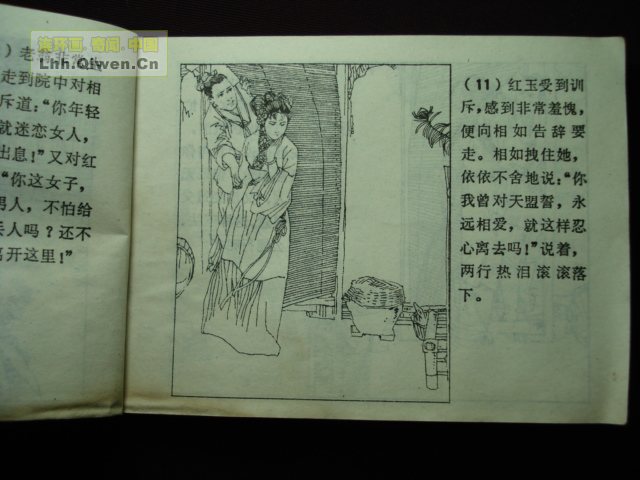 连环画.奇闻.中国
Lhh.Qiwen.Cn
）老
走到院中对相
斥道：“你年轻
就迷恋女人，
出息！”又对红
“你这女子，
男人，不怕给
丢人吗？还不
离开这里！”
（11）红玉受到训
斥，感到非常羞愧，
便向相如告辞要
走。相如拽住她，
依依不舍地说：“你
我曾对天盟誓，永
远相爱，就这样忍
心离去吗！”说着，
两行热泪滚滚落
下。